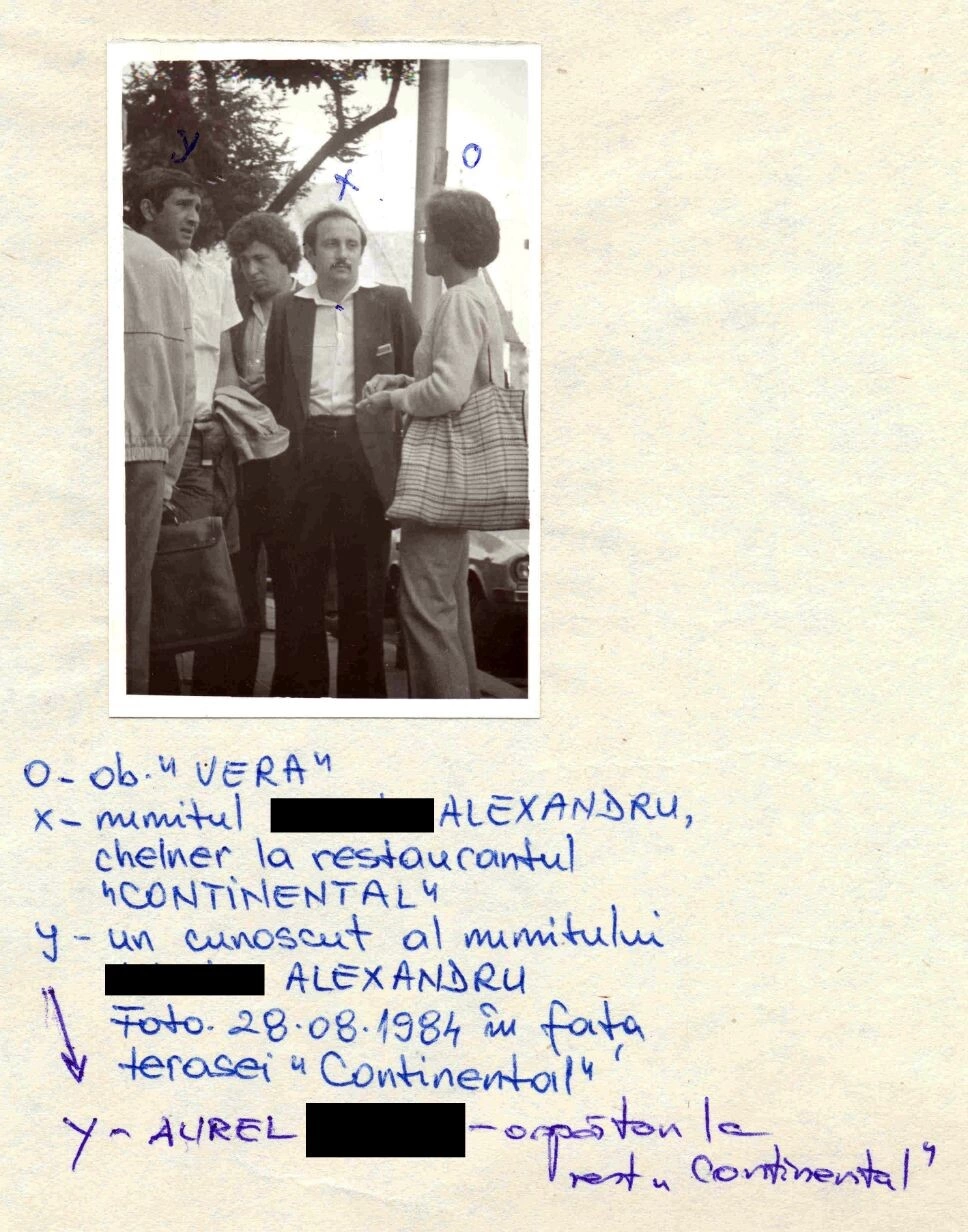 y
x
O
O - ob. "VERA"
x - numitul ALEXANDRU,
chelner la restaurantul
"CONTINENTAL"
y - un cunoscut al numitului
ALEXANDRU
Foto. 28.08.1984 în fața
terasei "Continental"
y - AUREL - ospătar la
rest "Continental"